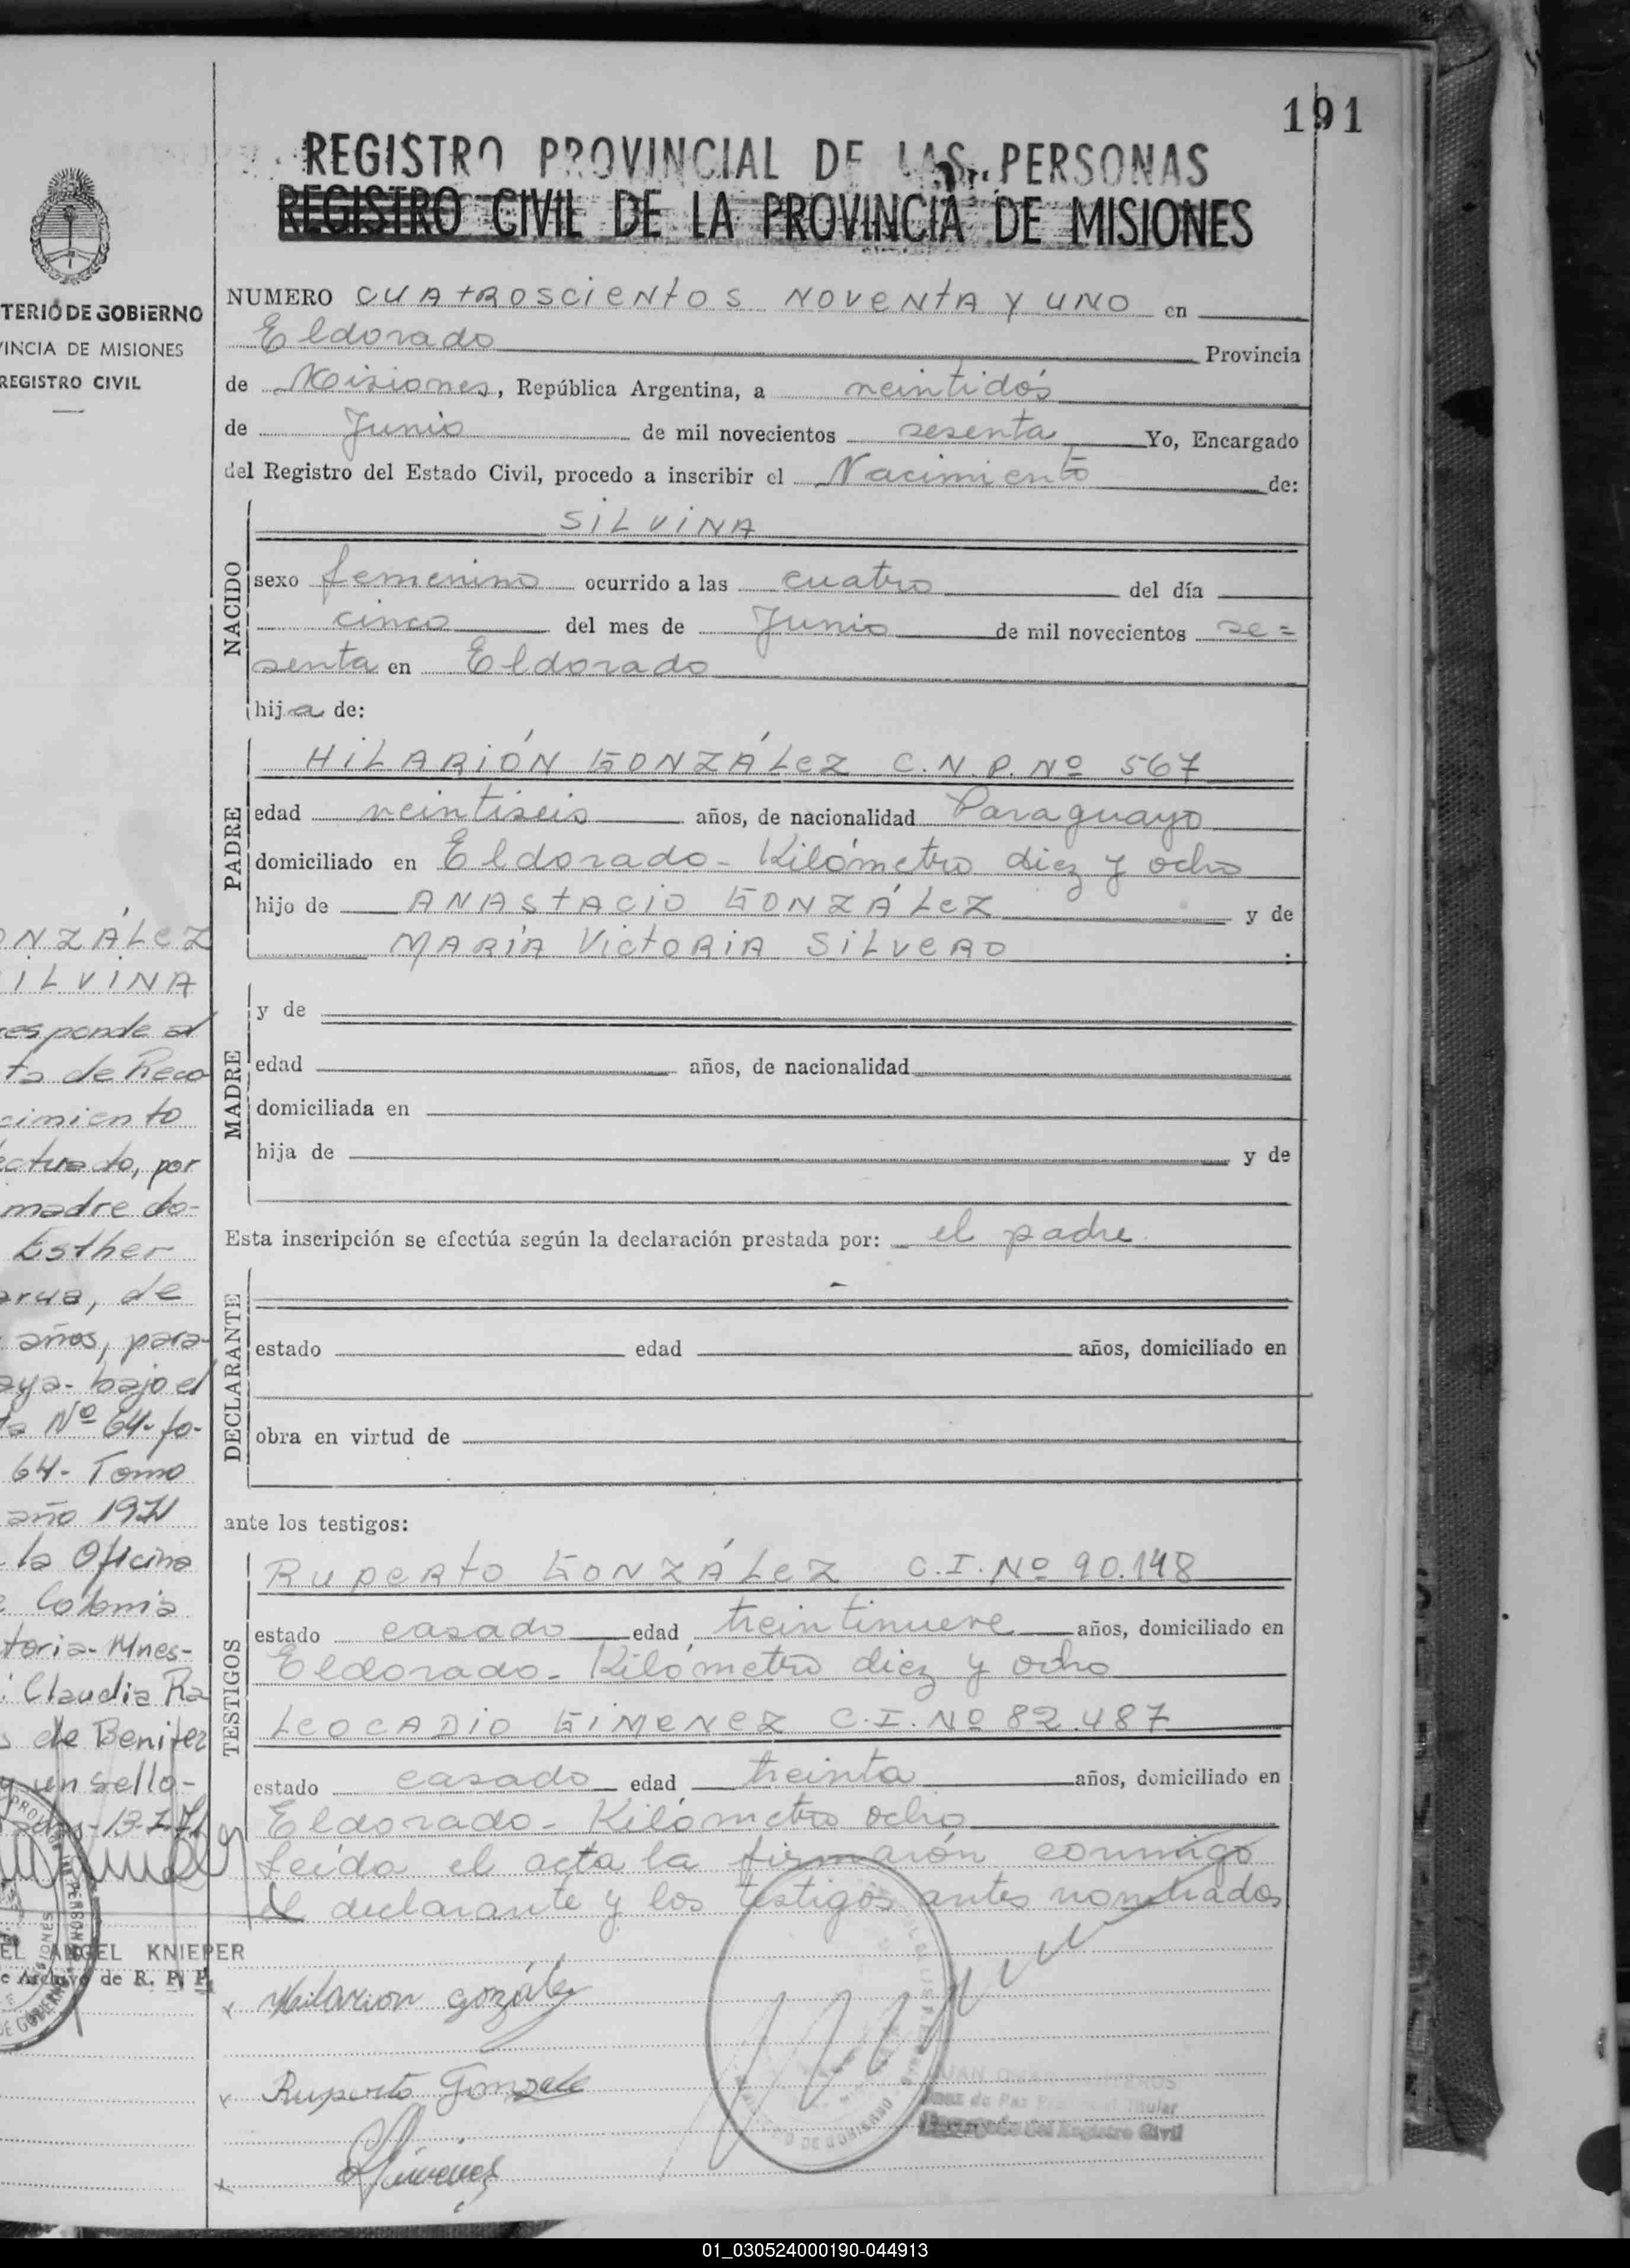 191
REGISTRO PROVINCIAL DE LAS PERSONAS
REGISTRO CIVIL DE LA PROVINCIA DE MISIONES
TERIO DE GOBIERNO
VINCIA DE MISIONES
REGISTRO CIVIL
NUMERO CUAtROSCIENtOS NOVENtA Y UNO en
Eldorado Provincia
de Misiones, República Argentina, a veintidós
de Junio de mil novecientos sesenta Yo, Encargado
del Registro del Estado Civil, procedo a inscribir el Nacimiento de:
NACIDO
SILVINA
sexo femenino ocurrido a las cuatro del día
cinco del mes de Junio de mil novecientos se=
senta en Eldorado
hija de:
PADRE
HILARIÓN GONZÁLEZ C.N.P. Nº 567
edad veintiseis años, de nacionalidad Paraguayo
domiciliado en Eldorado - Kilómetro diez y ocho
hijo de ANAStACIO GONZÁLEZ y de
MARÍA VICtORIA SILVERO :
MADRE
y de
edad años, de nacionalidad
domiciliada en
hija de y de
Esta inscripción se efectúa según la declaración prestada por: el padre
DECLARANTE
estado edad años, domiciliado en
obra en virtud de
ante los testigos:
TESTIGOS
RUPERtO GONZÁLEZ C.I. Nº 90.148
estado casado edad treintinueve años, domiciliado en
Eldorado - Kilómetro diez y ocho
LEOCADIO GIMENEZ C.I. Nº 82.487
estado casado edad treinta años, domiciliado en
Eldorado - Kilómetro ocho
Leída el acta la firmarón conmigo
el declarante y los testigos antes nombrados
Hilarion Gozález
Ruperto Gonzale
LGimenez
Juez de Paz Titular
Encargado del Registro Civil
ONZÁLEZ
ILVINA
responde al
ta de Reco
cimiento
ectuado, por
madre do-
Esther
arua, de
años, para-
aya- bajo el
ta Nº 64- fo-
64- Tomo
año 1971
la Oficina
e Colonia
toria- Mnes-
: Claudia Ra
s de Benitez
y un sello-
13-7-71
EL ANGEL KNIEPER
e Archivo de R. P. P.
01_030524000190-044913